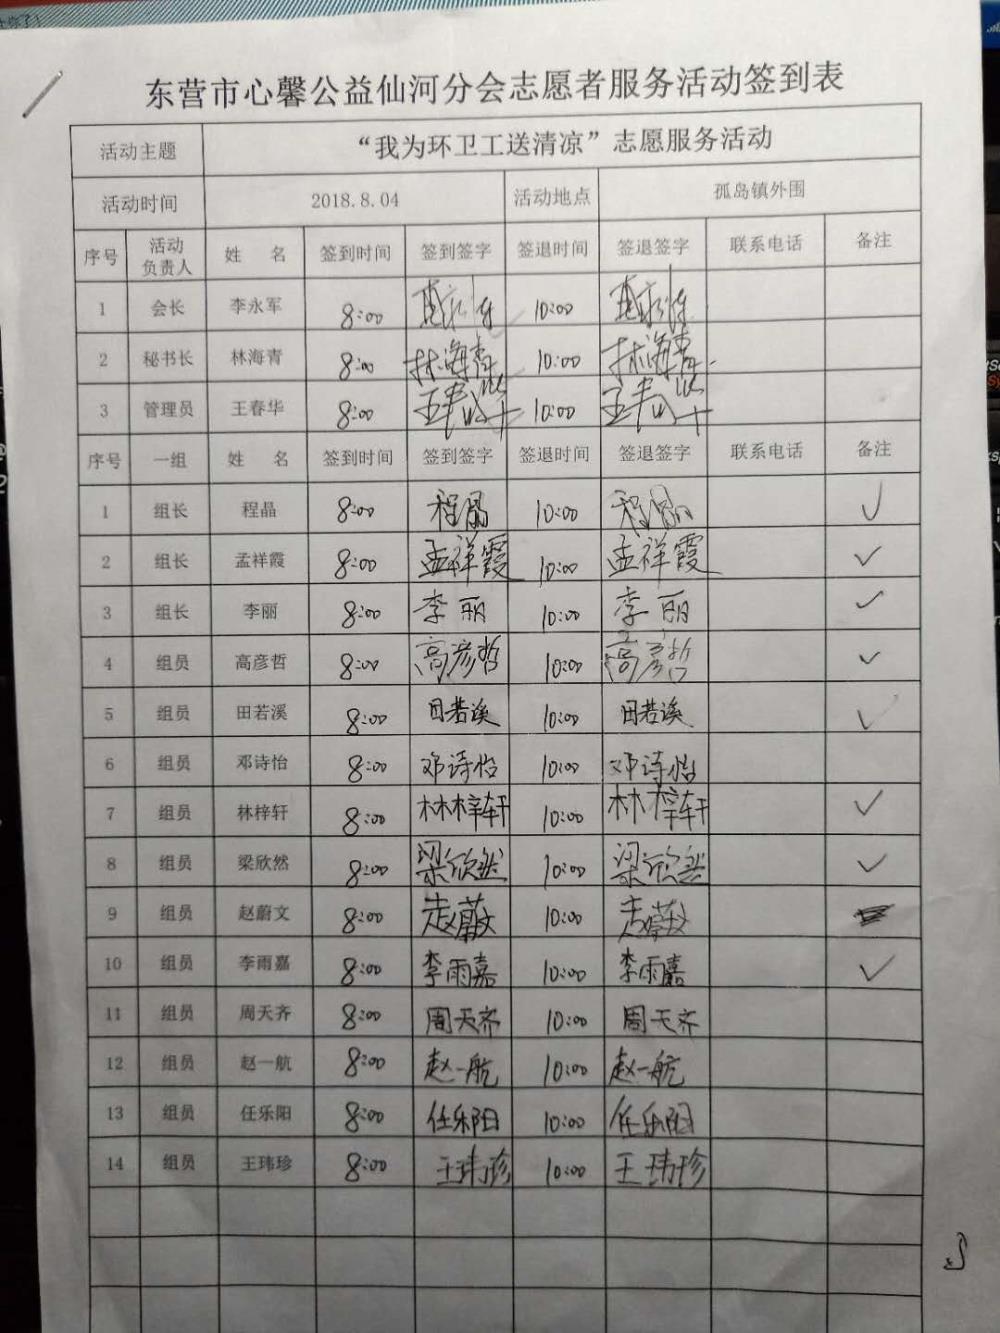 东营市心馨公益仙河分会志愿者服务活动签到表
活动主题 “我为环卫工送清凉”志愿服务活动
活动时间 2018.8.04 活动地点 孤岛镇外围
序号 活动负责人 姓 名 签到时间 签到签字 签退时间 签退签字 联系电话 备注
1 会长 李永军 8:00 10:00
2 秘书长 林海青 8:00 林海青 10:00 林海青
3 管理员 王春华 8:00 10:00
序号 一组 姓 名 签到时间 签到签字 签退时间 签退签字 联系电话 备注
1 组长 程晶 8:00 程晶 10:00 程晶 ✓
2 组长 孟祥霞 8:00 孟祥霞 10:00 孟祥霞 ✓
3 组长 李丽 8:00 李丽 10:00 李丽 ✓
4 组员 高彦哲 8:00 高彦哲 10:00 高彦哲 ✓
5 组员 田若溪 8:00 田若溪 10:00 田若溪 ✓
6 组员 邓诗怡 8:00 邓诗怡 10:00 邓诗怡
7 组员 林梓轩 8:00 林梓轩 10:00 林梓轩 ✓
8 组员 梁欣然 8:00 梁欣然 10:00 梁欣然 ✓
9 组员 赵蔚文 8:00 赵蔚文 10:00 赵蔚文
10 组员 李雨嘉 8:00 李雨嘉 10:00 李雨嘉 ✓
11 组员 周天齐 8:00 周天齐 10:00 周天齐
12 组员 赵一航 8:00 赵一航 10:00 赵一航
13 组员 任乐阳 8:00 任乐阳 10:00 任乐阳
14 组员 王玮珍 8:00 王玮珍 10:00 王玮珍